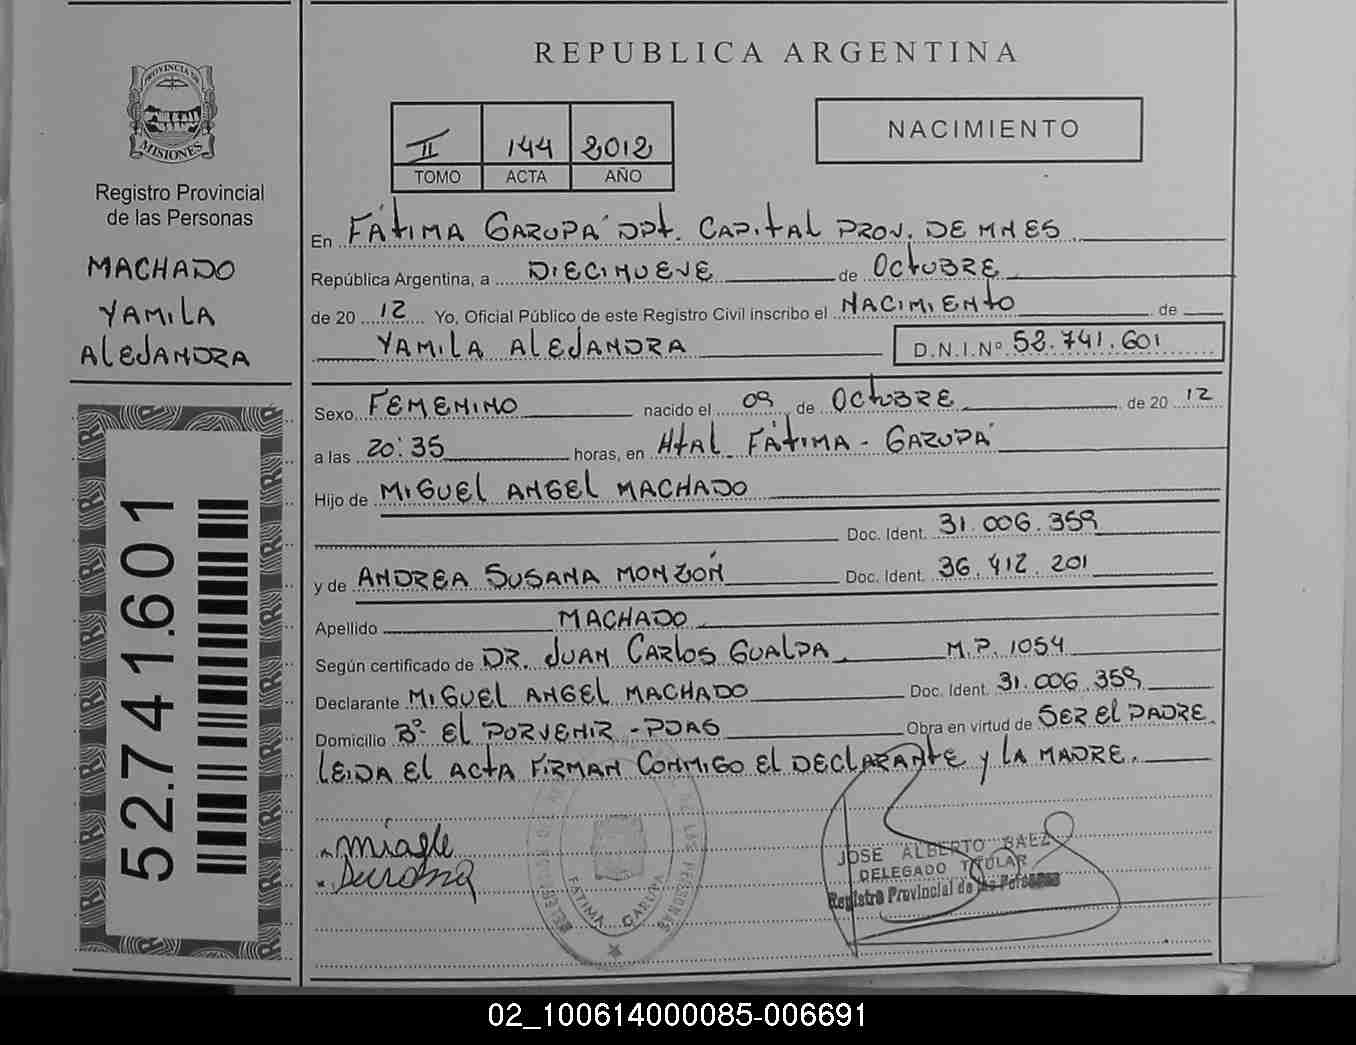 PROVINCIA DE
MISIONES
Registro Provincial
de las Personas
MACHADO
YAMILA
ALEJANDRA
52.741.601
REPUBLICA ARGENTINA
II 144 2012
TOMO ACTA AÑO
NACIMIENTO
En FÁTIMA GARUPÁ DPT. CAPITAL PROV. DE MNES
República Argentina, a DIECINUEVE de OCTUBRE
de 20 12 Yo, Oficial Público de este Registro Civil inscribo el NACIMIENTO de
YAMILA ALEJANDRA D.N.I.Nº 52.741.601
Sexo FEMENINO nacido el 09 de OCTUBRE de 20 12
a las 20:35 horas, en HTAL FÁTIMA - GARUPÁ
Hijo de MIGUEL ANGEL MACHADO
Doc. Ident. 31.006.359
y de ANDREA SUSANA MONZÓN Doc. Ident. 36.412.201
Apellido MACHADO
Según certificado de DR. JUAN CARLOS GUALPA M.P. 1054
Declarante MIGUEL ANGEL MACHADO Doc. Ident. 31.006.359
Domicilio Bº EL PORVENIR - PDAS Obra en virtud de SER EL PADRE
LEIDA EL ACTA FIRMAN CONMIGO EL DECLARANTE Y LA MADRE.
FATIMA GARUPA
DE LAS PERSONAS
JOSE ALBERTO BAEZ
DELEGADO TITULAR
Registro Provincial de las Personas
02_100614000085-006691